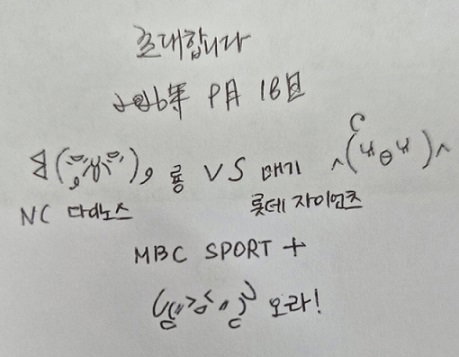 초대합니다
6年 9月 18日
룡 VS 매기
NC 다이노스 롯데 자이언츠
MBC SPORT +
오라!